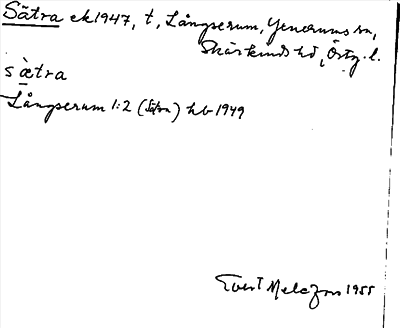 Sätra ek 1947, t, Långserum, Yxnerums sn,
Skärkinds hd, Östg. l.
sætra
Långserum 1:2 (Sätra) hb 1949
Evert Melefors 1955